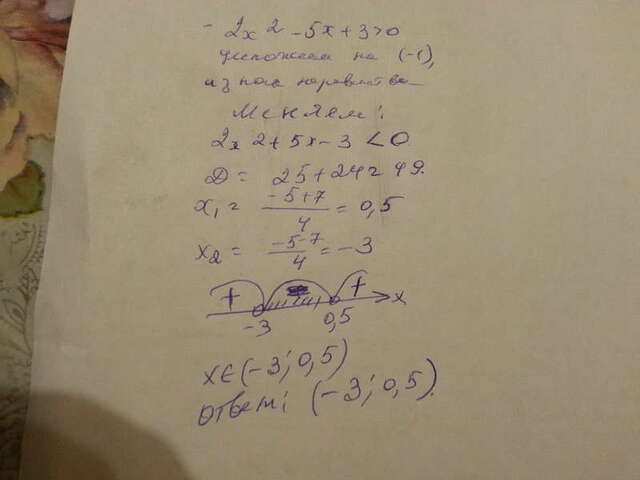 - 2x² - 5x + 3 > 0
умножаем на (-1),
знак неравенства
меняем:
2x² + 5x - 3 < 0
D = 25 + 24 = 49.
x₁ = (-5+7)/4 = 0,5
x₂ = (-5-7)/4 = -3
+ - + x
-3 0,5
x∈(-3; 0,5)
ответ: (-3; 0,5).